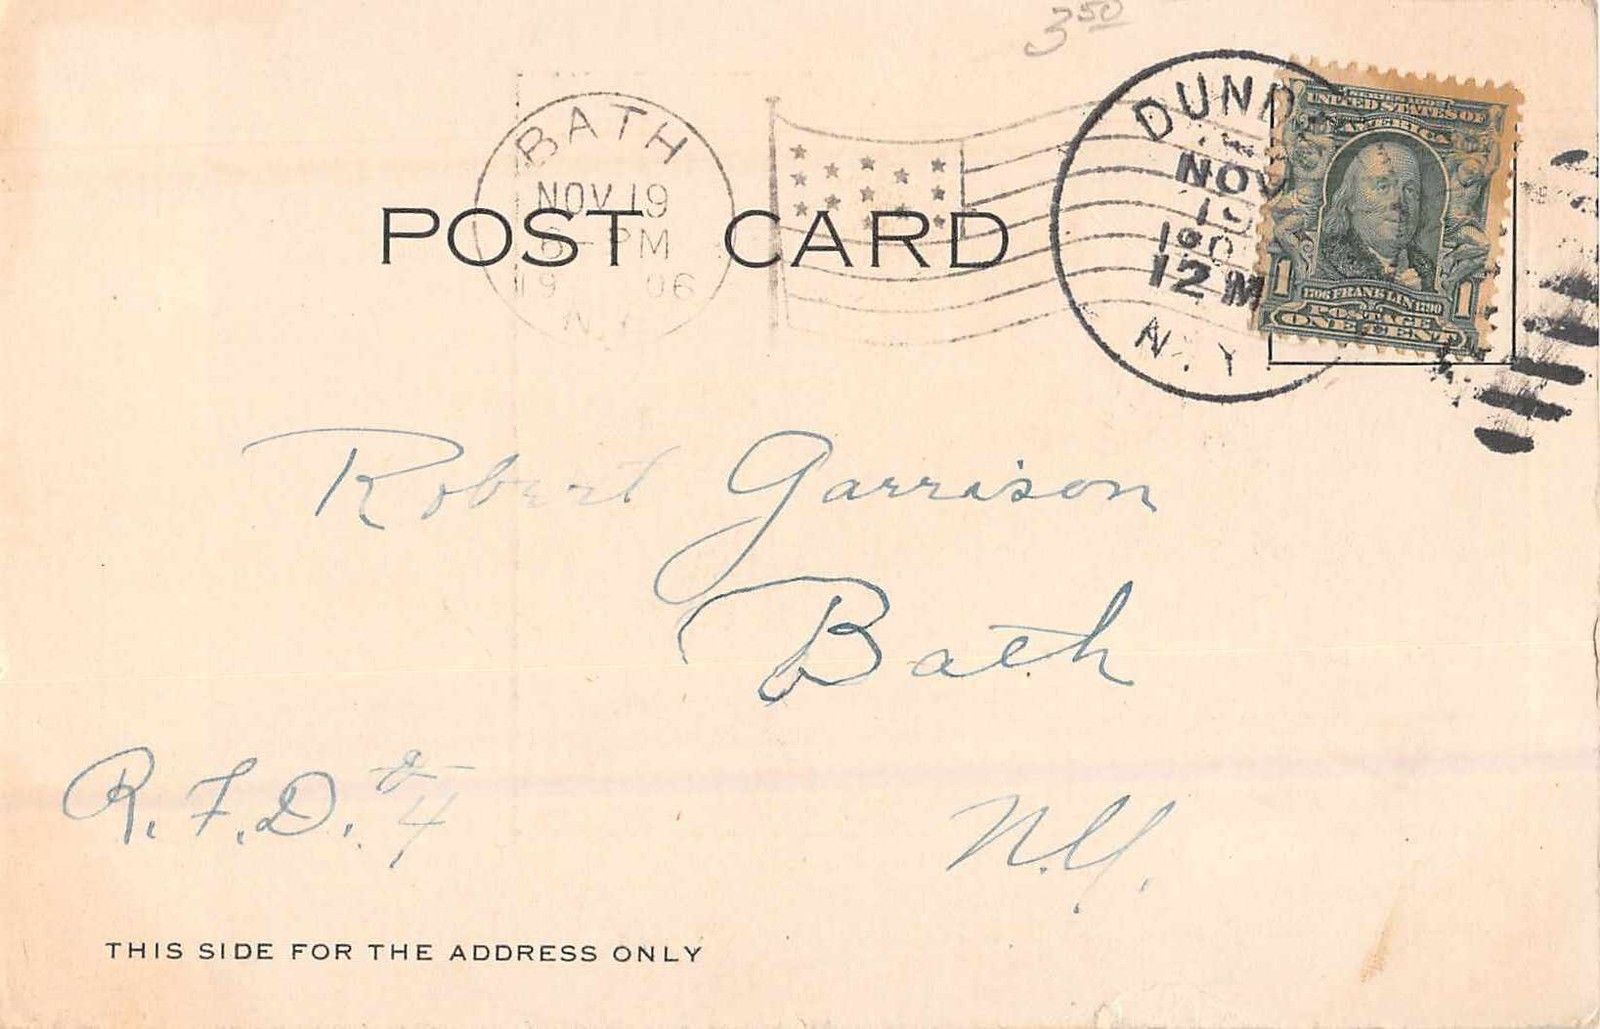 3 50
BATH
NOV 19
PM
19 06
N.Y.
POST CARD
NOV
12 M
N.Y.
UNITED STATES OF
AMERICA
1 1706 FRANKLIN 1790 1
POSTAGE
ONE CENT
Robert Garrison
Bath
R.F.D. # 4
N.Y.
THIS SIDE FOR THE ADDRESS ONLY